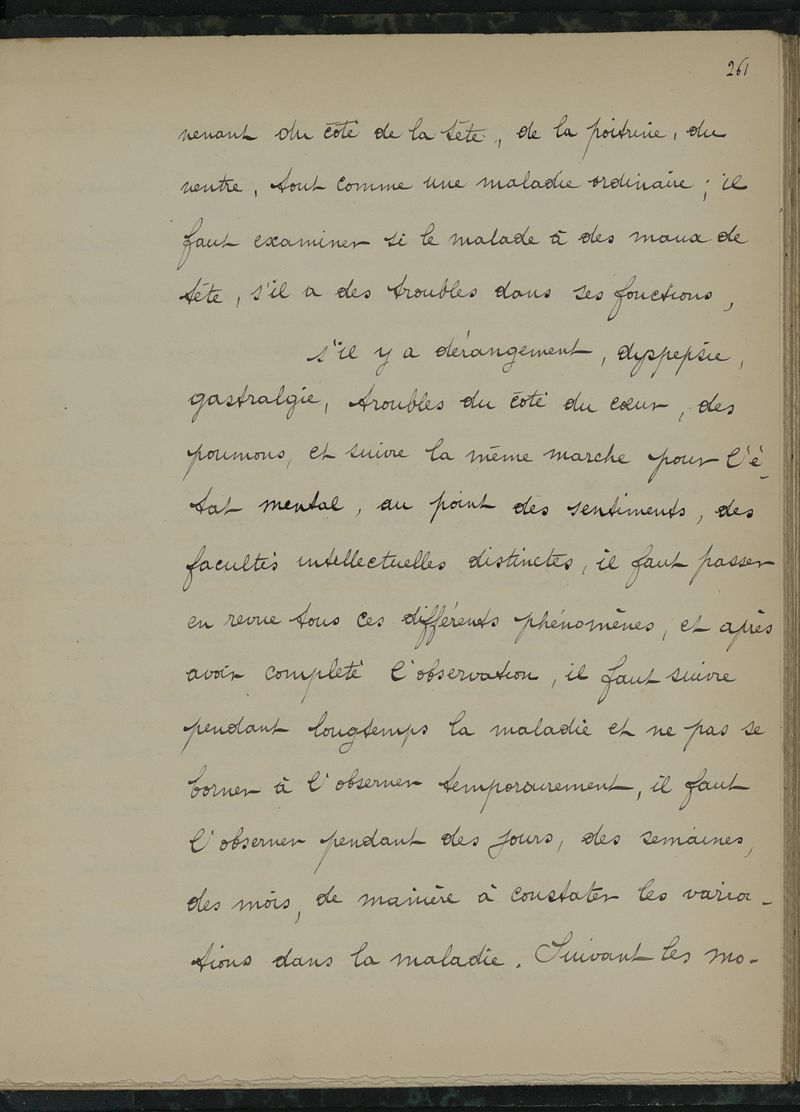 261
venant du côté de la tête, de la poitrine, du
ventre, tout comme une maladie ordinaire ; il
faut examiner si le malade à des maux de
tête, s'il a des troubles dans ses fonctions,
s'il y a dérangement, dyspepsie,
gastralgie, troubles du côté du cœur, des
poumons, et suivre la même marche pour l'é-
tat mental, au point des sentiments, des
facultés intellectuelles distinctes, il faut passer
en revue tous ces différents phénomènes, et après
avoir completé l'observation, il faut suivre
pendant longtemps la maladie et ne pas se
borner à l'observer temporairement, il faut
l'observer pendant des jours, des semaines,
des mois, de manière à constater les varia-
tions dans la maladie. Suivant les mo-